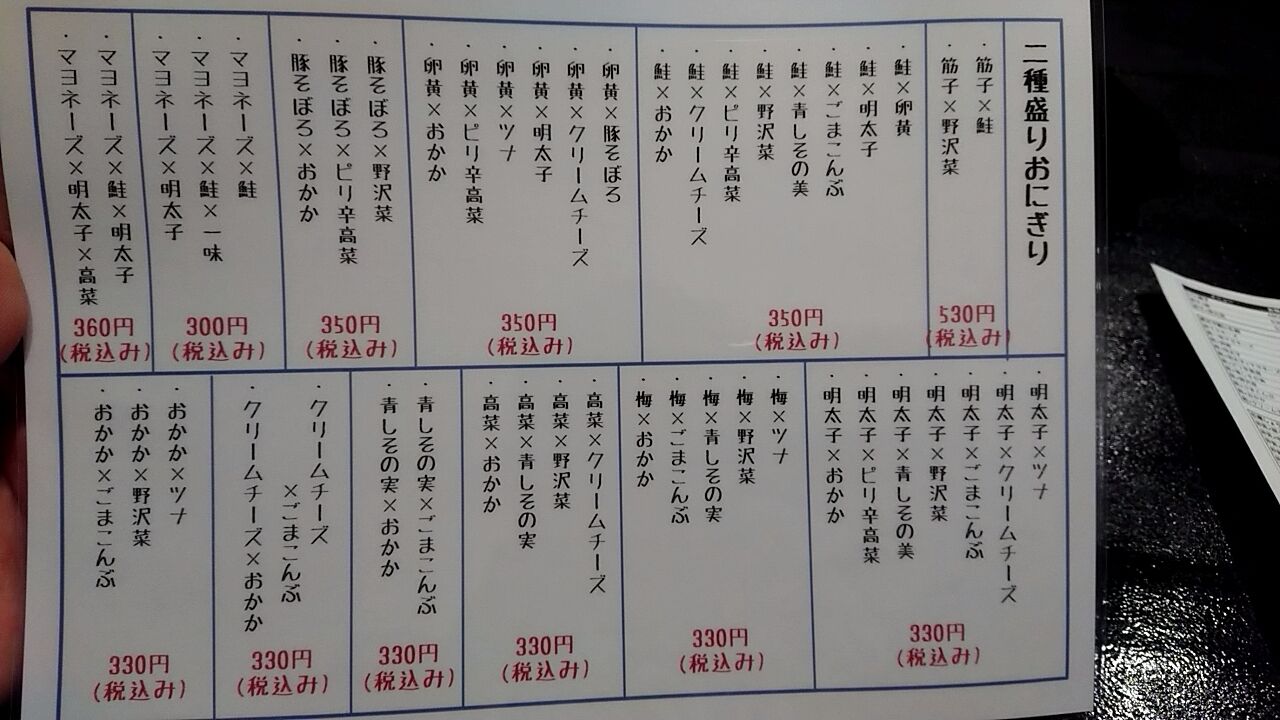 二種盛りおにぎり
・筋子×鮭
・筋子×野沢菜
530円
(税込み)
・鮭×卵黄
・鮭×明太子
・鮭×ごまこんぶ
・鮭×青しその美
・鮭×野沢菜
・鮭×ピリ辛高菜
・鮭×クリームチーズ
・鮭×おかか
350円
(税込み)
・卵黄×豚そぼろ
・卵黄×クリームチーズ
・卵黄×明太子
・卵黄×ツナ
・卵黄×ピリ辛高菜
・卵黄×おかか
350円
(税込み)
・豚そぼろ×野沢菜
・豚そぼろ×ピリ辛高菜
・豚そぼろ×おかか
350円
(税込み)
・マヨネーズ×鮭
・マヨネーズ×鮭×一味
・マヨネーズ×明太子
300円
(税込み)
・マヨネーズ×鮭×明太子
・マヨネーズ×明太子×高菜
360円
(税込み)
・明太子×ツナ
・明太子×クリームチーズ
・明太子×ごまこんぶ
・明太子×野沢菜
・明太子×青しその美
・明太子×ピリ辛高菜
・明太子×おかか
330円
(税込み)
・梅×ツナ
・梅×野沢菜
・梅×青しその実
・梅×ごまこんぶ
・梅×おかか
330円
(税込み)
・高菜×クリームチーズ
・高菜×野沢菜
・高菜×青しその実
・高菜×おかか
330円
(税込み)
・青しその実×ごまこんぶ
・青しその実×おかか
330円
(税込み)
・クリームチーズ
×ごまこんぶ
・クリームチーズ×おかか
330円
(税込み)
・おかか×ツナ
・おかか×野沢菜
・おかか×ごまこんぶ
330円
(税込み)